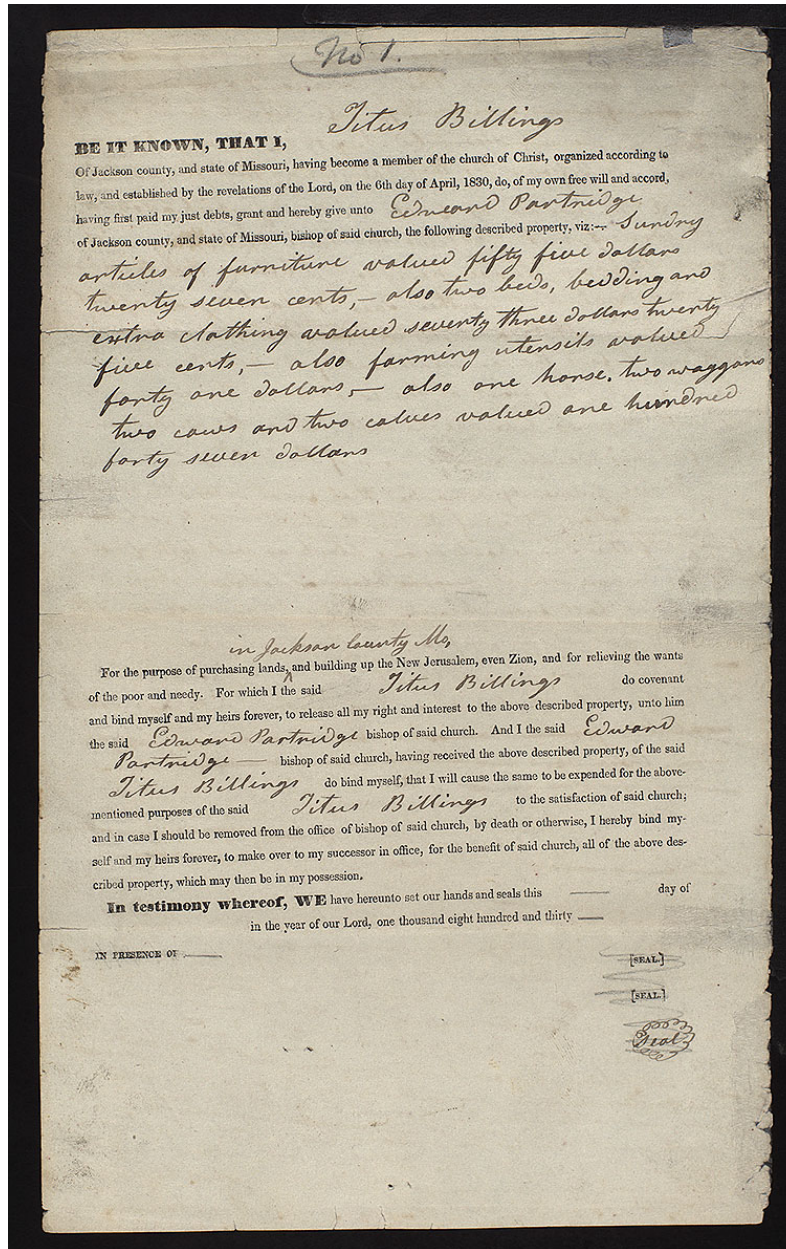 No 1.
BE IT KNOWN, THAT I, Titus Billings
Of Jackson county, and state of Missouri, having become a member of the church of Christ, organized according to
law, and established by the revelations of the Lord, on the 6th day of April, 1830, do, of my own free will and accord,
having first paid my just debts, grant and hereby give unto Edward Partridge
of Jackson county, and state of Missouri, bishop of said church, the following described property, viz:— Sundry
articles of furniture valued fifty five dollars
twenty seven cents,— also two beds, bedding and
extra clothing valued seventy three dollars twenty
five cents,— also farming utensils valued
forty one dollars,— also one horse, two waggons
two cows and two calves valued one hundred
forty seven dollars
in Jackson County Mo,
For the purpose of purchasing lands, ^ and building up the New Jerusalem, even Zion, and for relieving the wants
of the poor and needy. For which I the said Titus Billings do covenant
and bind myself and my heirs forever, to release all my right and interest to the above described property, unto him
the said Edward Partridge bishop of said church. And I the said Edward
Partridge — bishop of said church, having received the above described property, of the said
Titus Billings do bind myself, that I will cause the same to be expended for the above-
mentioned purposes of the said Titus Billings to the satisfaction of said church;
and in case I should be removed from the office of bishop of said church, by death or otherwise, I hereby bind my-
self and my heirs forever, to make over to my successor in office, for the benefit of said church, all of the above des-
cribed property, which may then be in my possession.
In testimony whereof, WE have hereunto set our hands and seals this —— day of
in the year of our Lord, one thousand eight hundred and thirty ——
IN PRESENCE OF ——
[SEAL.]
[SEAL.]
Seal